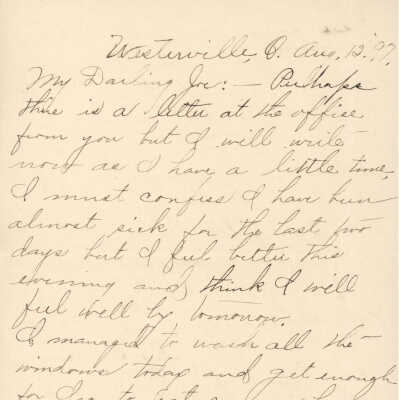 Westerville, O. Aug, 12, 97.
My Darling Joe: — Perhaps
there is a letter at the office
from you but I will write
now as I have a little time,
I must confess I have been
almost sick for the last two
days but I feel better this
evening and think I will
feel well by tomorrow.
I managed to wash all the
windows today and get enough
for